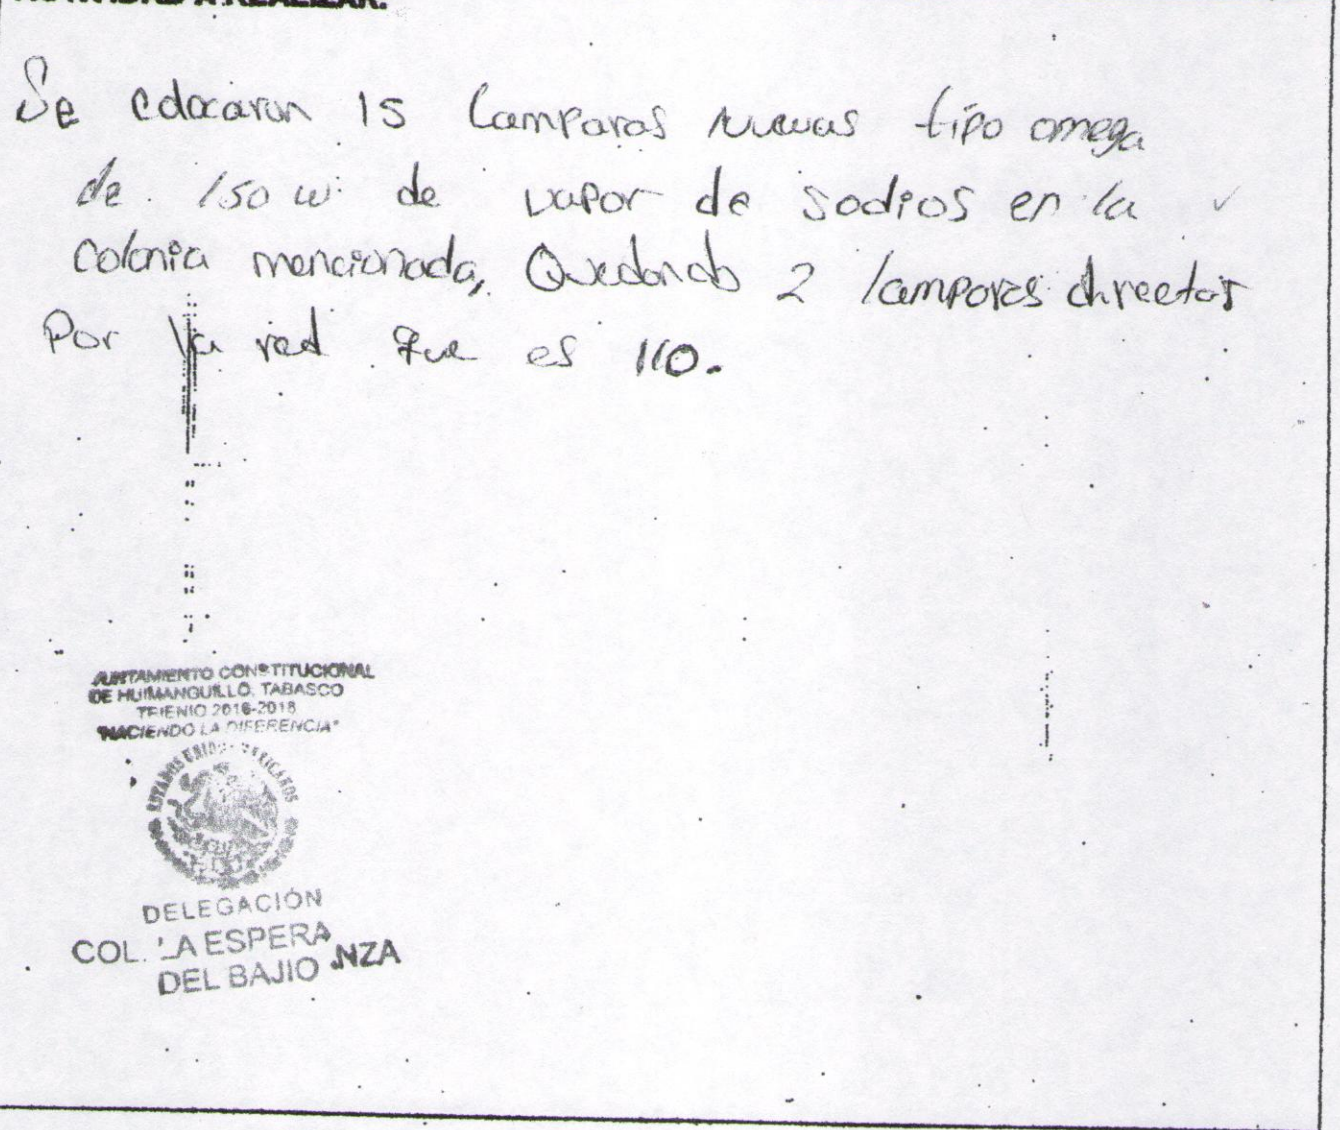 A REALIZAR:
Se colocaron 15 lamparas nuevas tipo omega
de 150 w de vapor de sodios en la
colonia mencionada, Quedando 2 lamparas directas
Por la red que es 110.
AYUNTAMIENTO CONSTITUCIONAL
DE HUIMANGUILLO, TABASCO
TRIENIO 2016-2018
"HACIENDO LA DIFERENCIA"
ESTADOS UNIDOS MEXICANOS
DELEGACIÓN
COL. LA ESPERANZA
DEL BAJIO